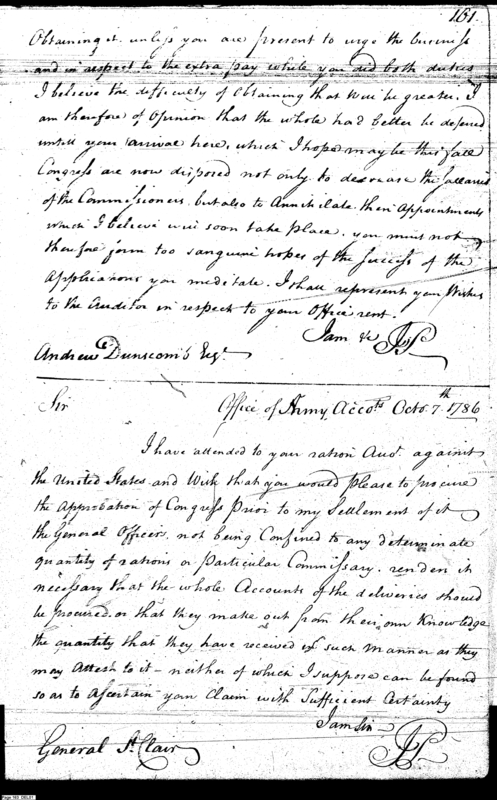 161.
Obtaining it. unless you are present to urge the business
and in respect to the extra pay while you did both duties
I believe the difficulty of obtaining that will be greater. I
am therefore of Opinion that the whole had better be defered
untill your arrival here, which I hope may be this fall
Congress are now disposed not only to decrease the sallaries
of the Commissioners but also to Annihilate their Appointments
which I believe will soon take place. you must not
therefore form too sanguine hopes of the success of the
Applications you meditate. I shall represent your Wishes
to the Auditor in respect to your Office rent.
I am &c JP
Andrew Dunscomb Esqr.
Sir Office of Army Accots Octo. 7th 1786
I have attended to your ration Acco. against
the United States and Wish that you would Please to procure
the Approbation of Congress Prior to my Settlement of it
the General Officers not being Confined to any determinate
quantity of rations or Particular Commissary. renders it
necessary that the whole Accounts of the deliveries should
be procured. or that they make out from their own Knowledge
the quantity that they have received in such manner as they
may Attest to it - neither of which I suppose can be found
so as to Ascertain your Claim with Sufficient Certainty
I am Sir JP
General St. Clair
Page 165